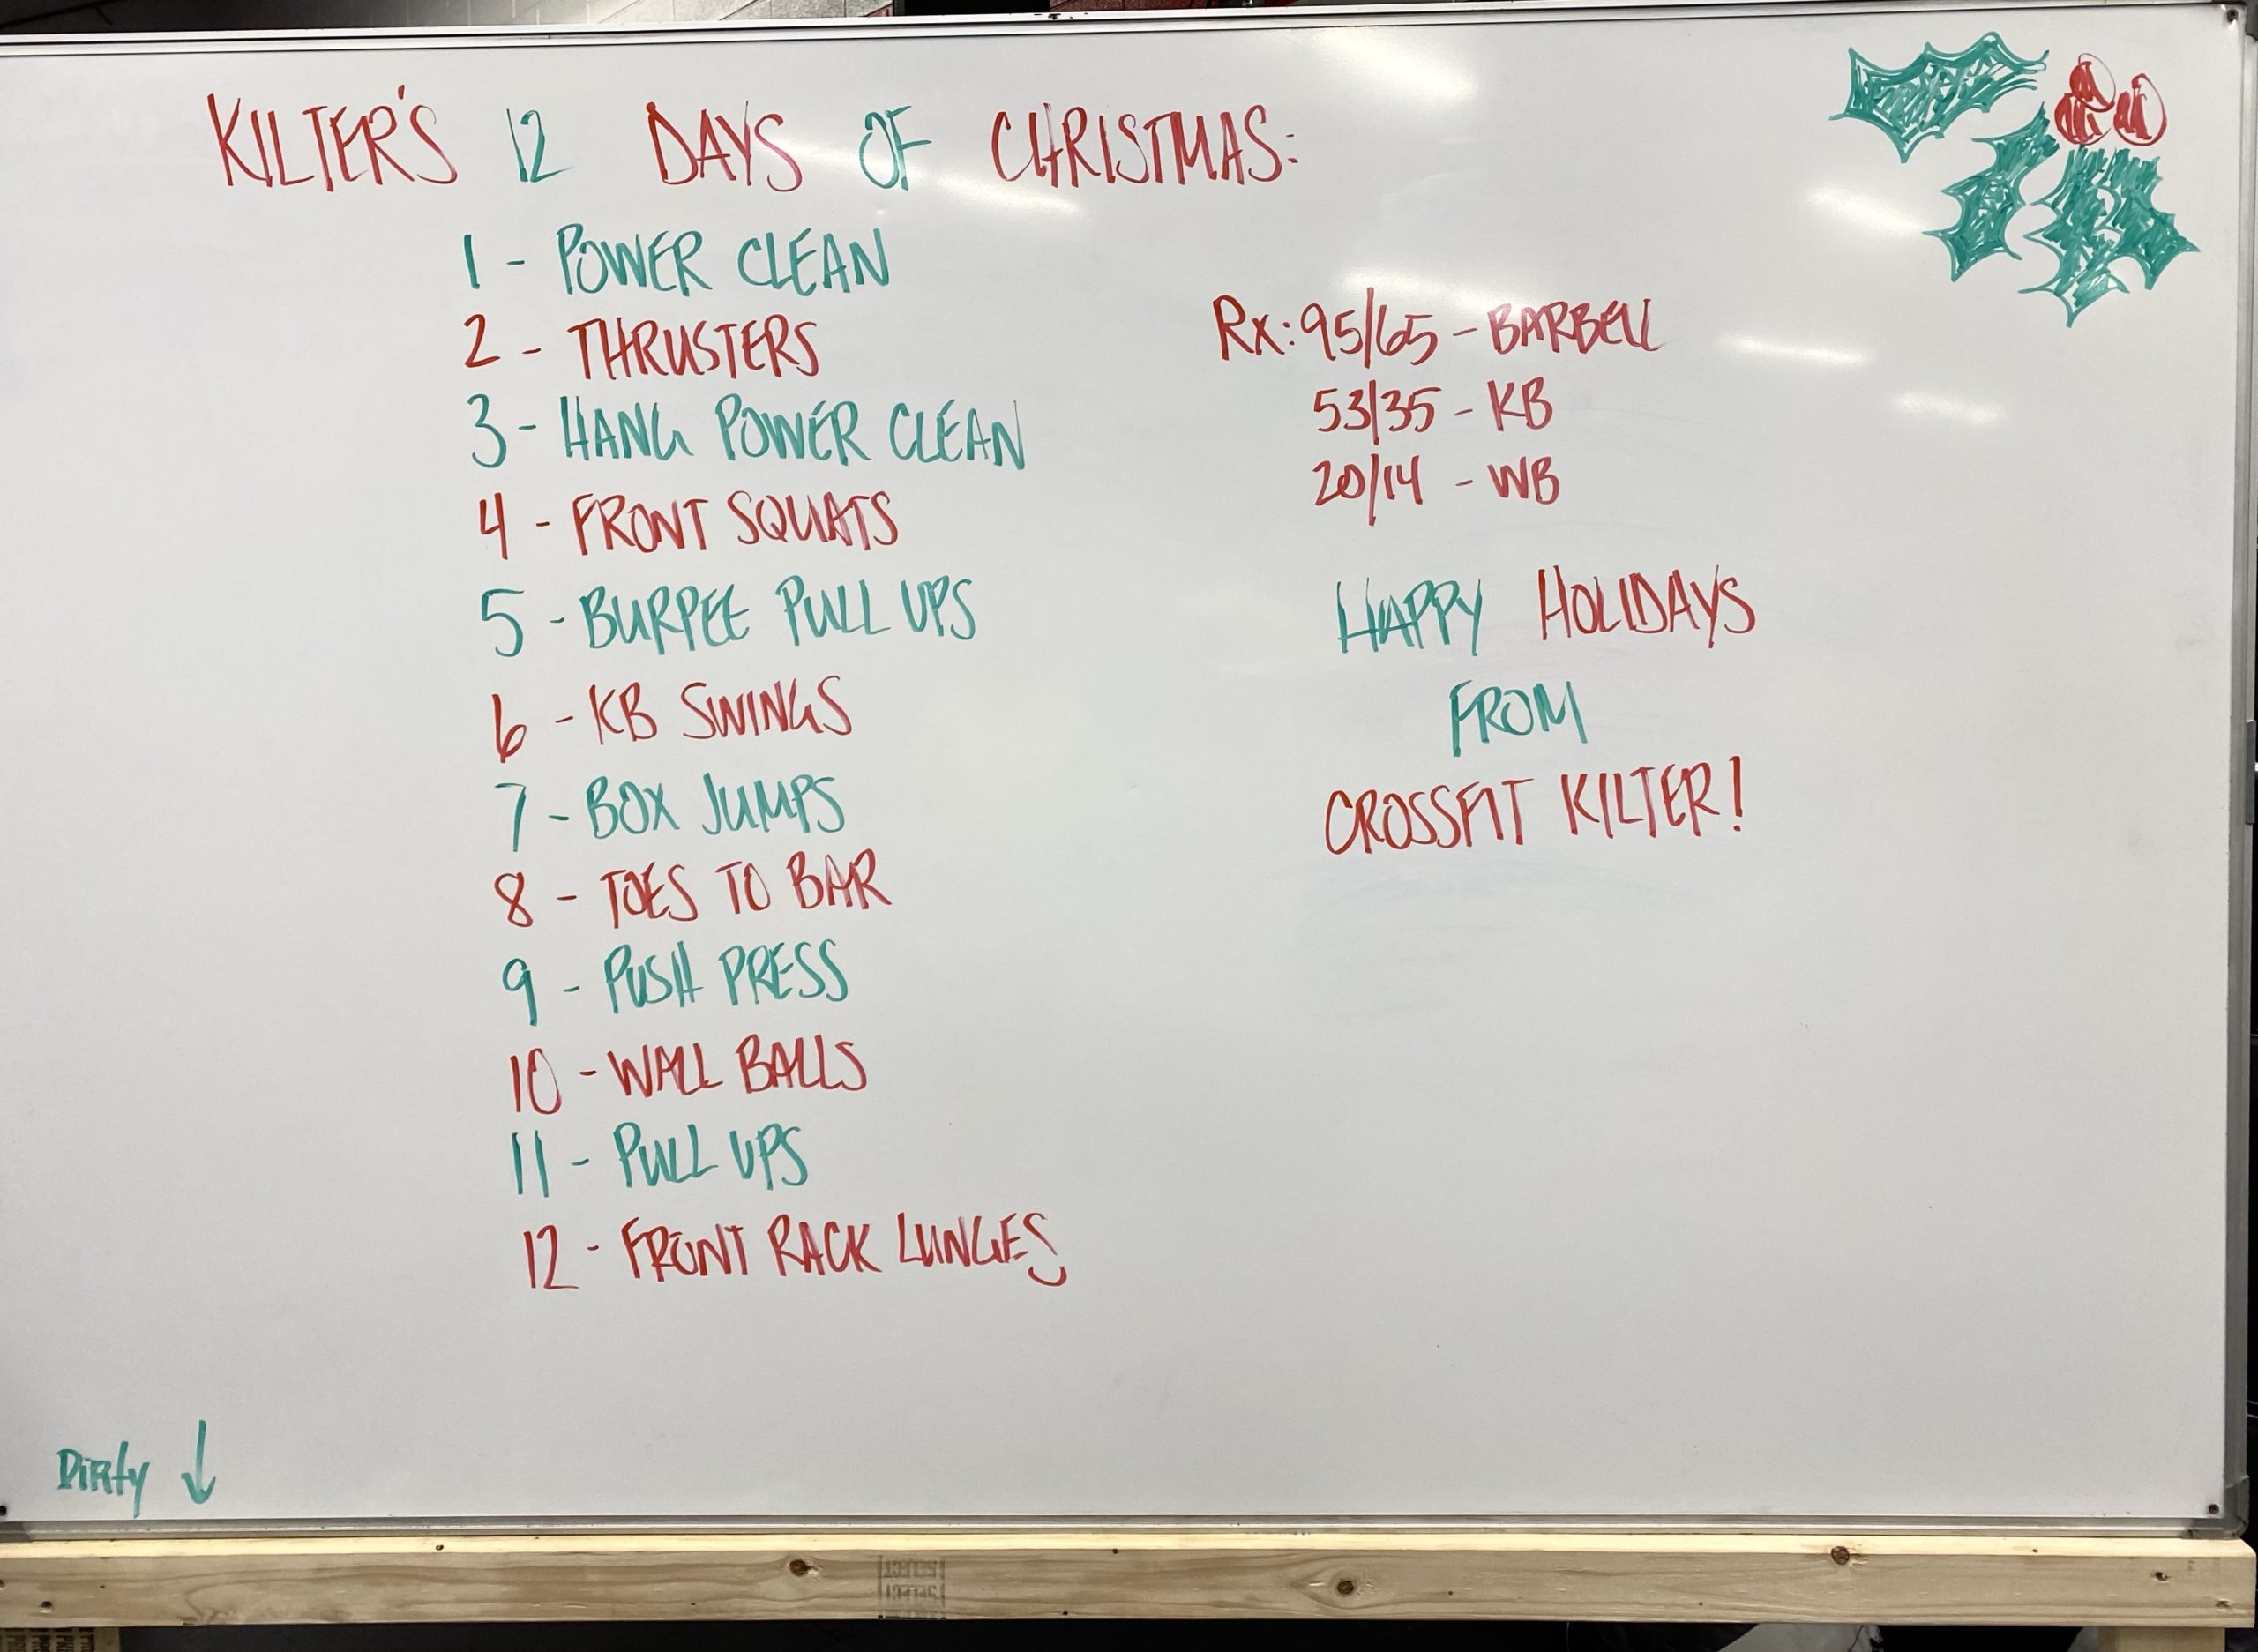 KILTER'S 12 DAYS OF CHRISTMAS:
1 - POWER CLEAN
2 - THRUSTERS
3 - HANG POWER CLEAN
4 - FRONT SQUATS
5 - BURPEE PULL UPS
6 - KB SWINGS
7 - BOX JUMPS
8 - TOES TO BAR
9 - PUSH PRESS
10 - WALL BALLS
11 - PULL UPS
12 - FRONT RACK LUNGES
Rx: 95/65 - BARBELL
53/35 - KB
20/14 - WB
HAPPY HOLIDAYS
FROM
CROSSFIT KILTER!
Dirty ↓